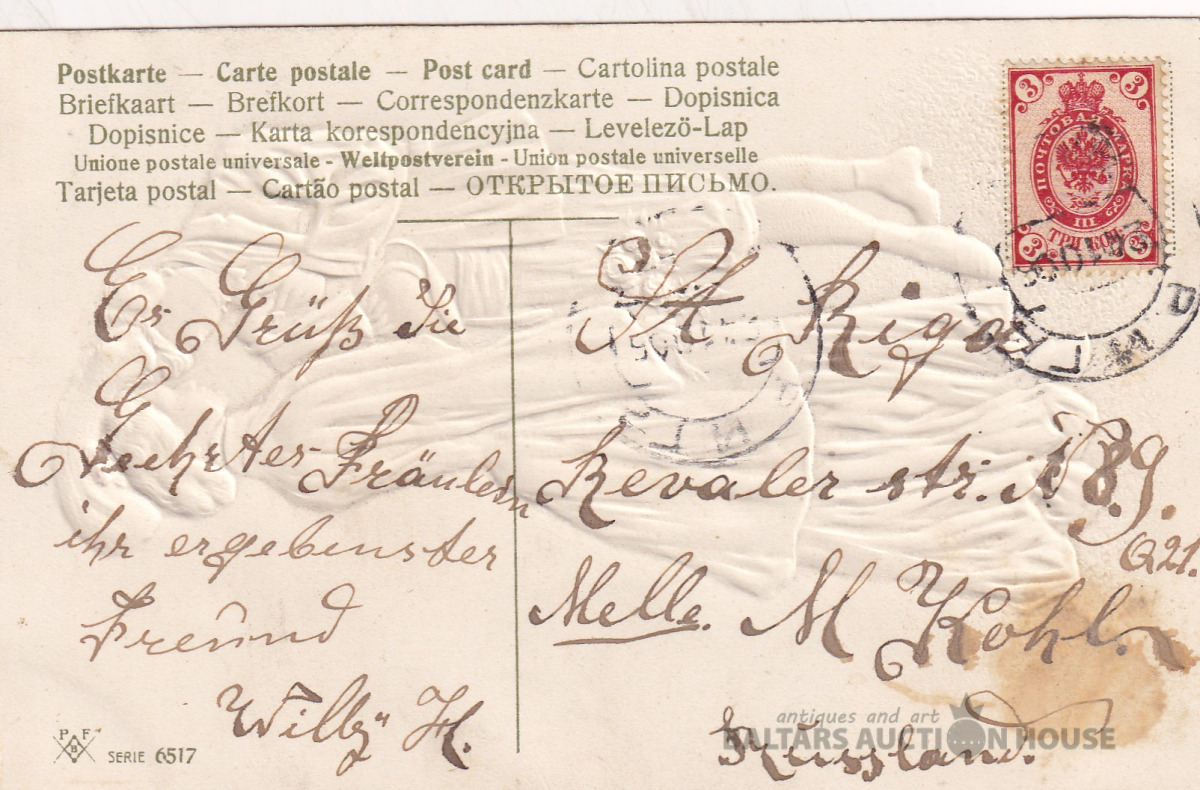 Postkarte — Carte postale — Post card — Cartolina postale
Briefkaart — Brefkort — Correspondenzkarte — Dopisnica
Dopisnice — Karta korespondencyjna — Levelezö-Lap
Unione postale universale - Weltpostverein - Union postale universelle
Tarjeta postal — Cartão postal — ОТКРЫТОЕ ПИСЬМО.
3 3
ПОЧТОВАЯ МАРКА
III
ТРИ КОП
3 3
Es Grüßt Sie
Geehrtes Fräulein
ihr ergebenster
Freund
Willy H.
St Riga
Revaler str. № 89.
Q 21.
Melle. M Kohl.
Russland.
P F
B
SERIE 6517
antiques and art
BALTARS AUCTION HOUSE